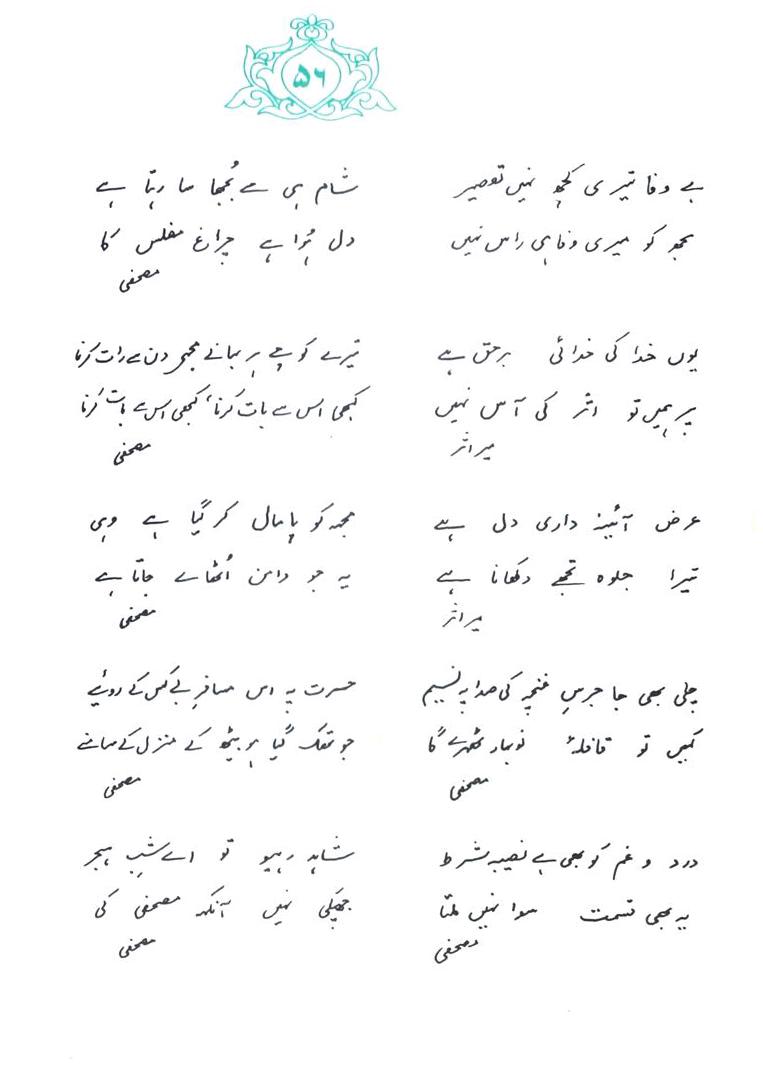 ۵۶
بے وفا تیری کچھ نہیں تقصیر
مجھ کو میری وفا ہی راس نہیں
یوں خدا کی خدائی برحق ہے
پر ہمیں تو اثر کی آس نہیں
میر اثر
عرض آئینہ داری دل ہے
تیرا جلوہ تجھے دکھانا ہے
میر اثر
چلی بھی جا جرسِ غنچہ کی صدا پہ نسیم
کہیں تو قافلۂ نوبہار ٹھہرے گا
مصحفی
درد و غم کو بھی ہے نصیبہ شرط
یہ بھی قسمت سوا نہیں ملتا
مصحفی
شام ہی سے بُجھا سا رہتا ہے
دل ہُوا ہے چراغ مفلس کا
مصحفی
تیرے کوچے ہر بہانے مجھے دن سے رات کرنا
کبھی اس سے بات کرنا، کبھی اس سے بات کرنا
مصحفی
مجھ کو پامال کر گیا ہے وہی
یہ جو دامن اُٹھائے جاتا ہے
مصحفی
حسرت پہ اس مسافرِ بے کس کے روئیے
جو تھک گیا ہو بیٹھ کے منزل کے سامنے
مصحفی
شاہد رہیو تو اے شبِ ہجر
جھپکی نہیں آنکھ مصحفی کی
مصحفی